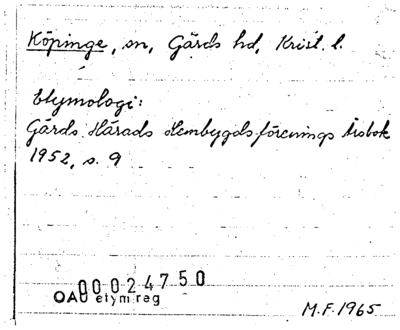 Köpinge, sn, Gärds hd, Krist. l.
Etymologi:
Gärds Härads Hembygdsförenings Årsbok
1952, s. 9
00024750
OAU etym reg
M.F. 1965